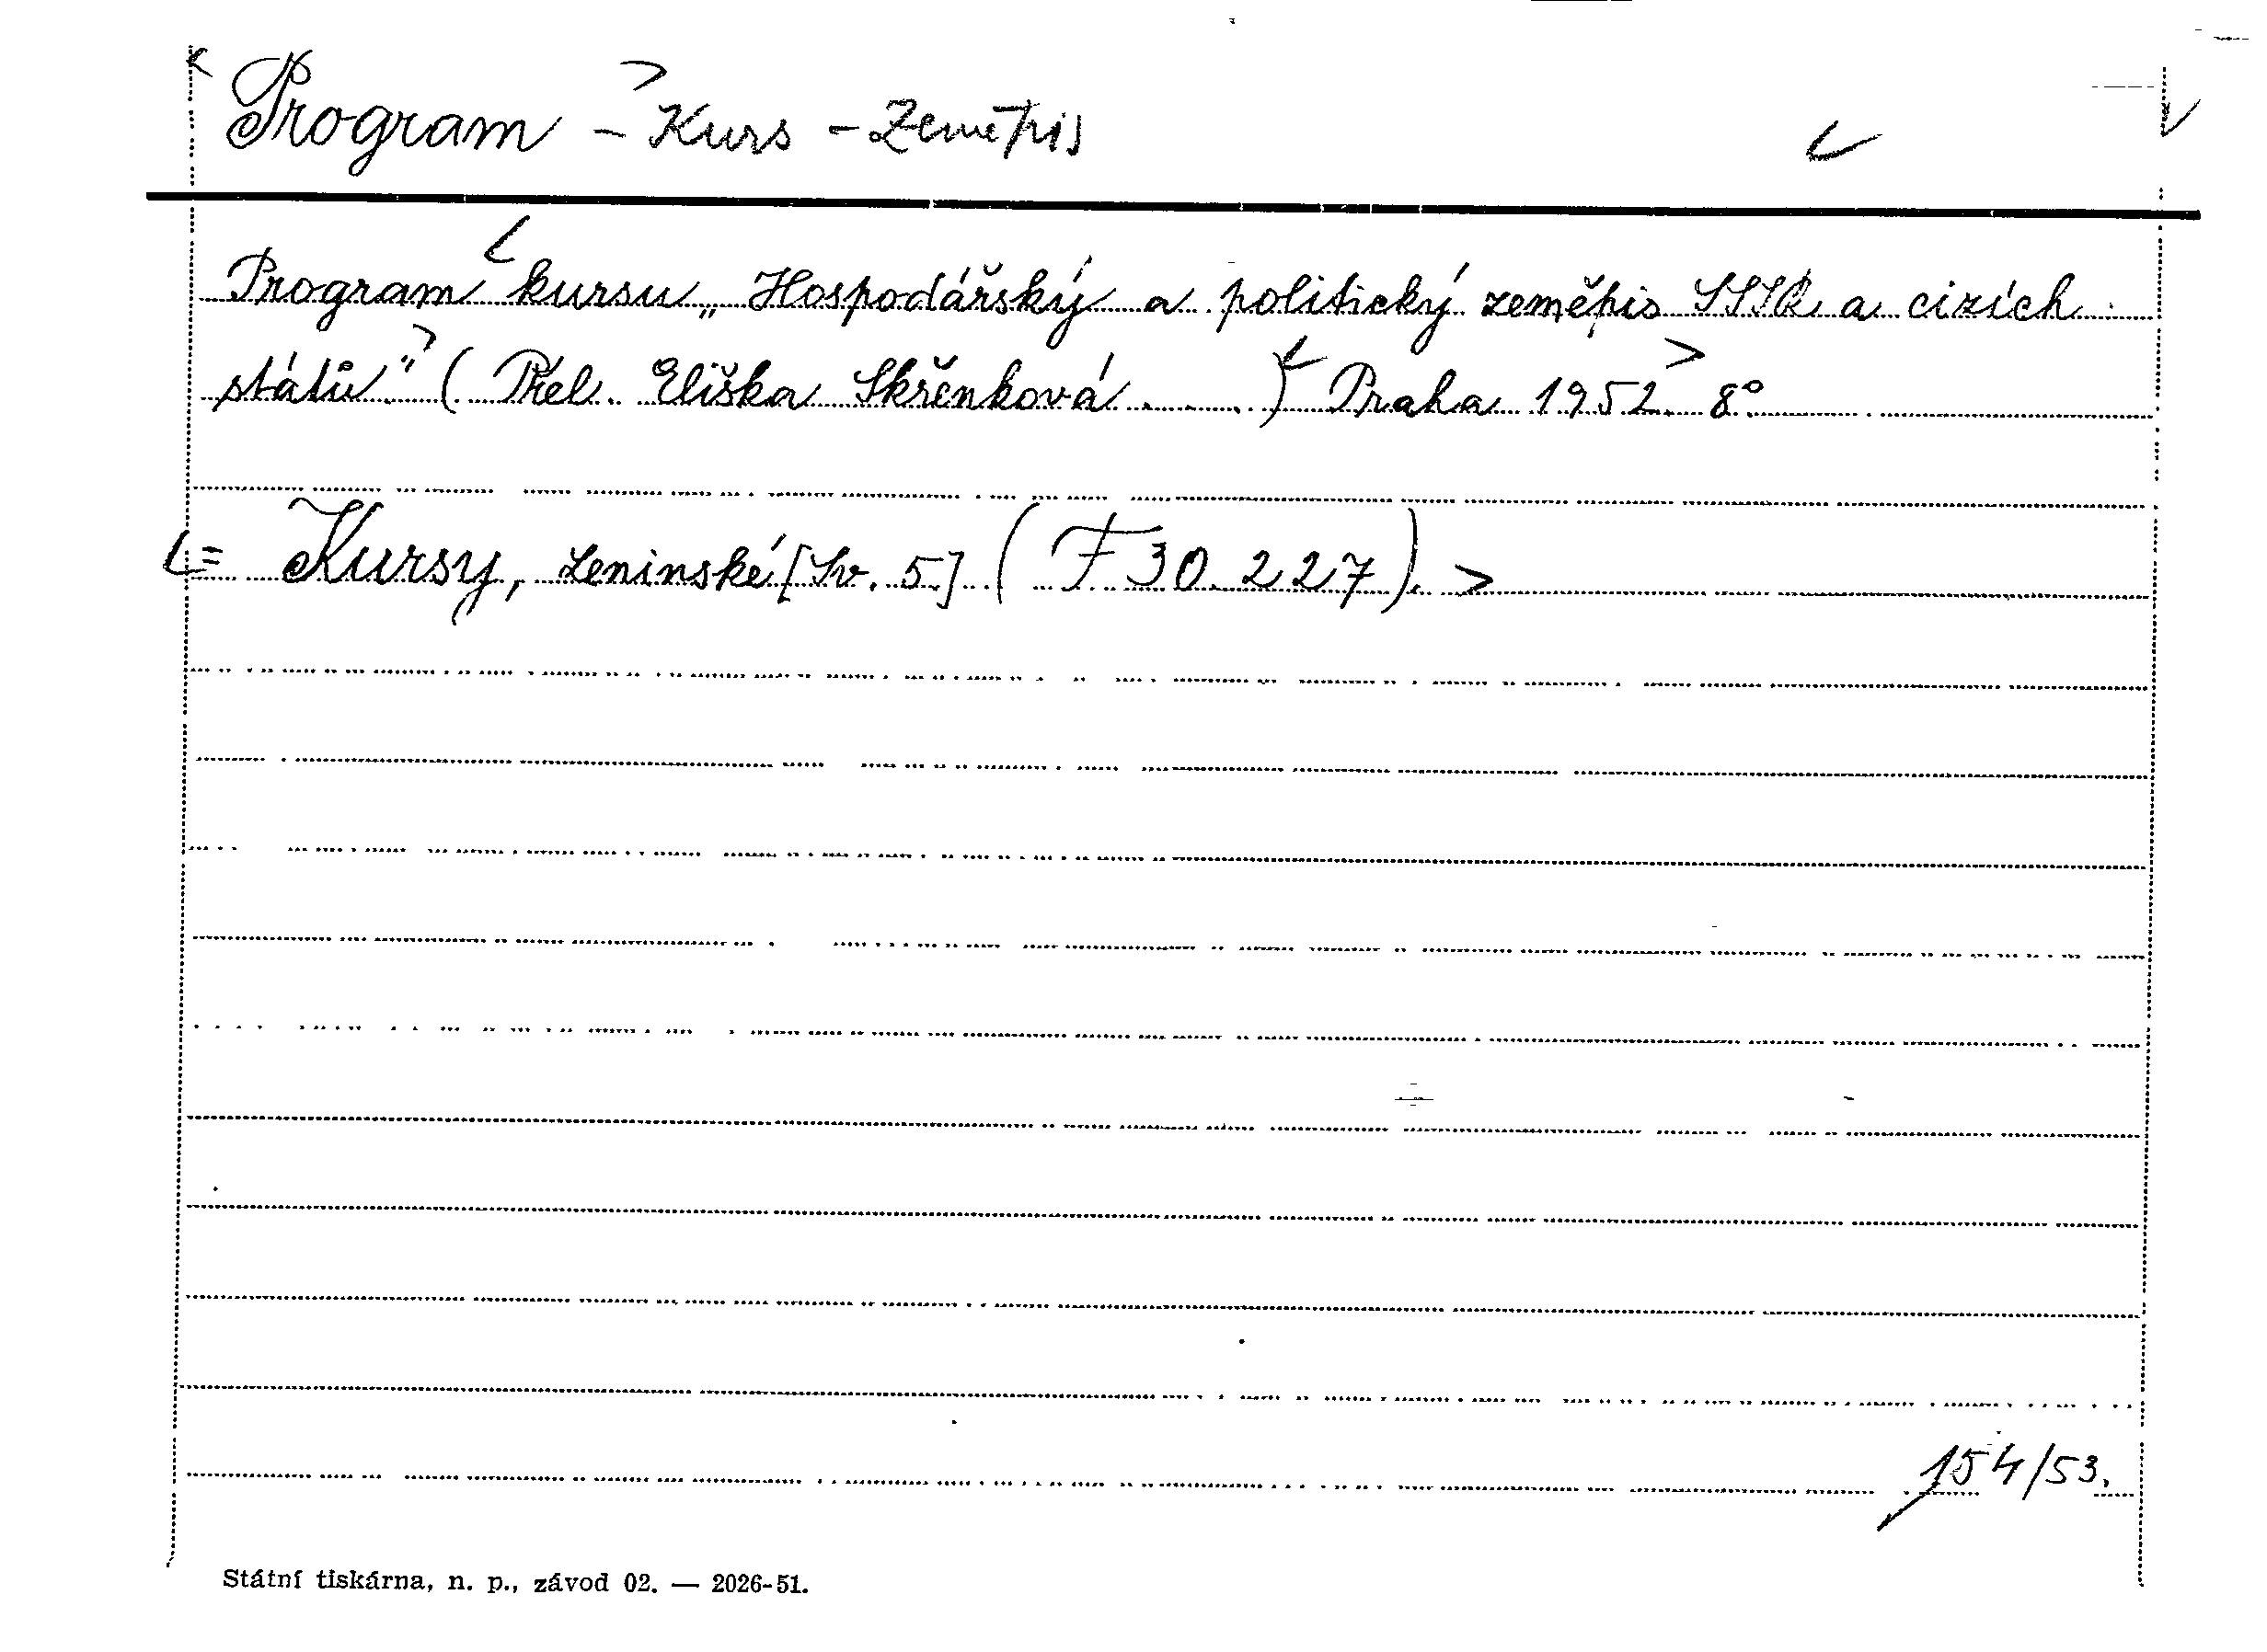 Program - Kurs - Zeměpis
Program kursu „Hospodářský a politický zeměpis SSSR a cizích
států." (Přel. Eliška Skřenková . . .) Praha 1952. 8°
= Kursy, Leninské [Sv. 5] (F 30.227).
154/53.
Státní tiskárna, n. p., závod 02. — 2026-51.